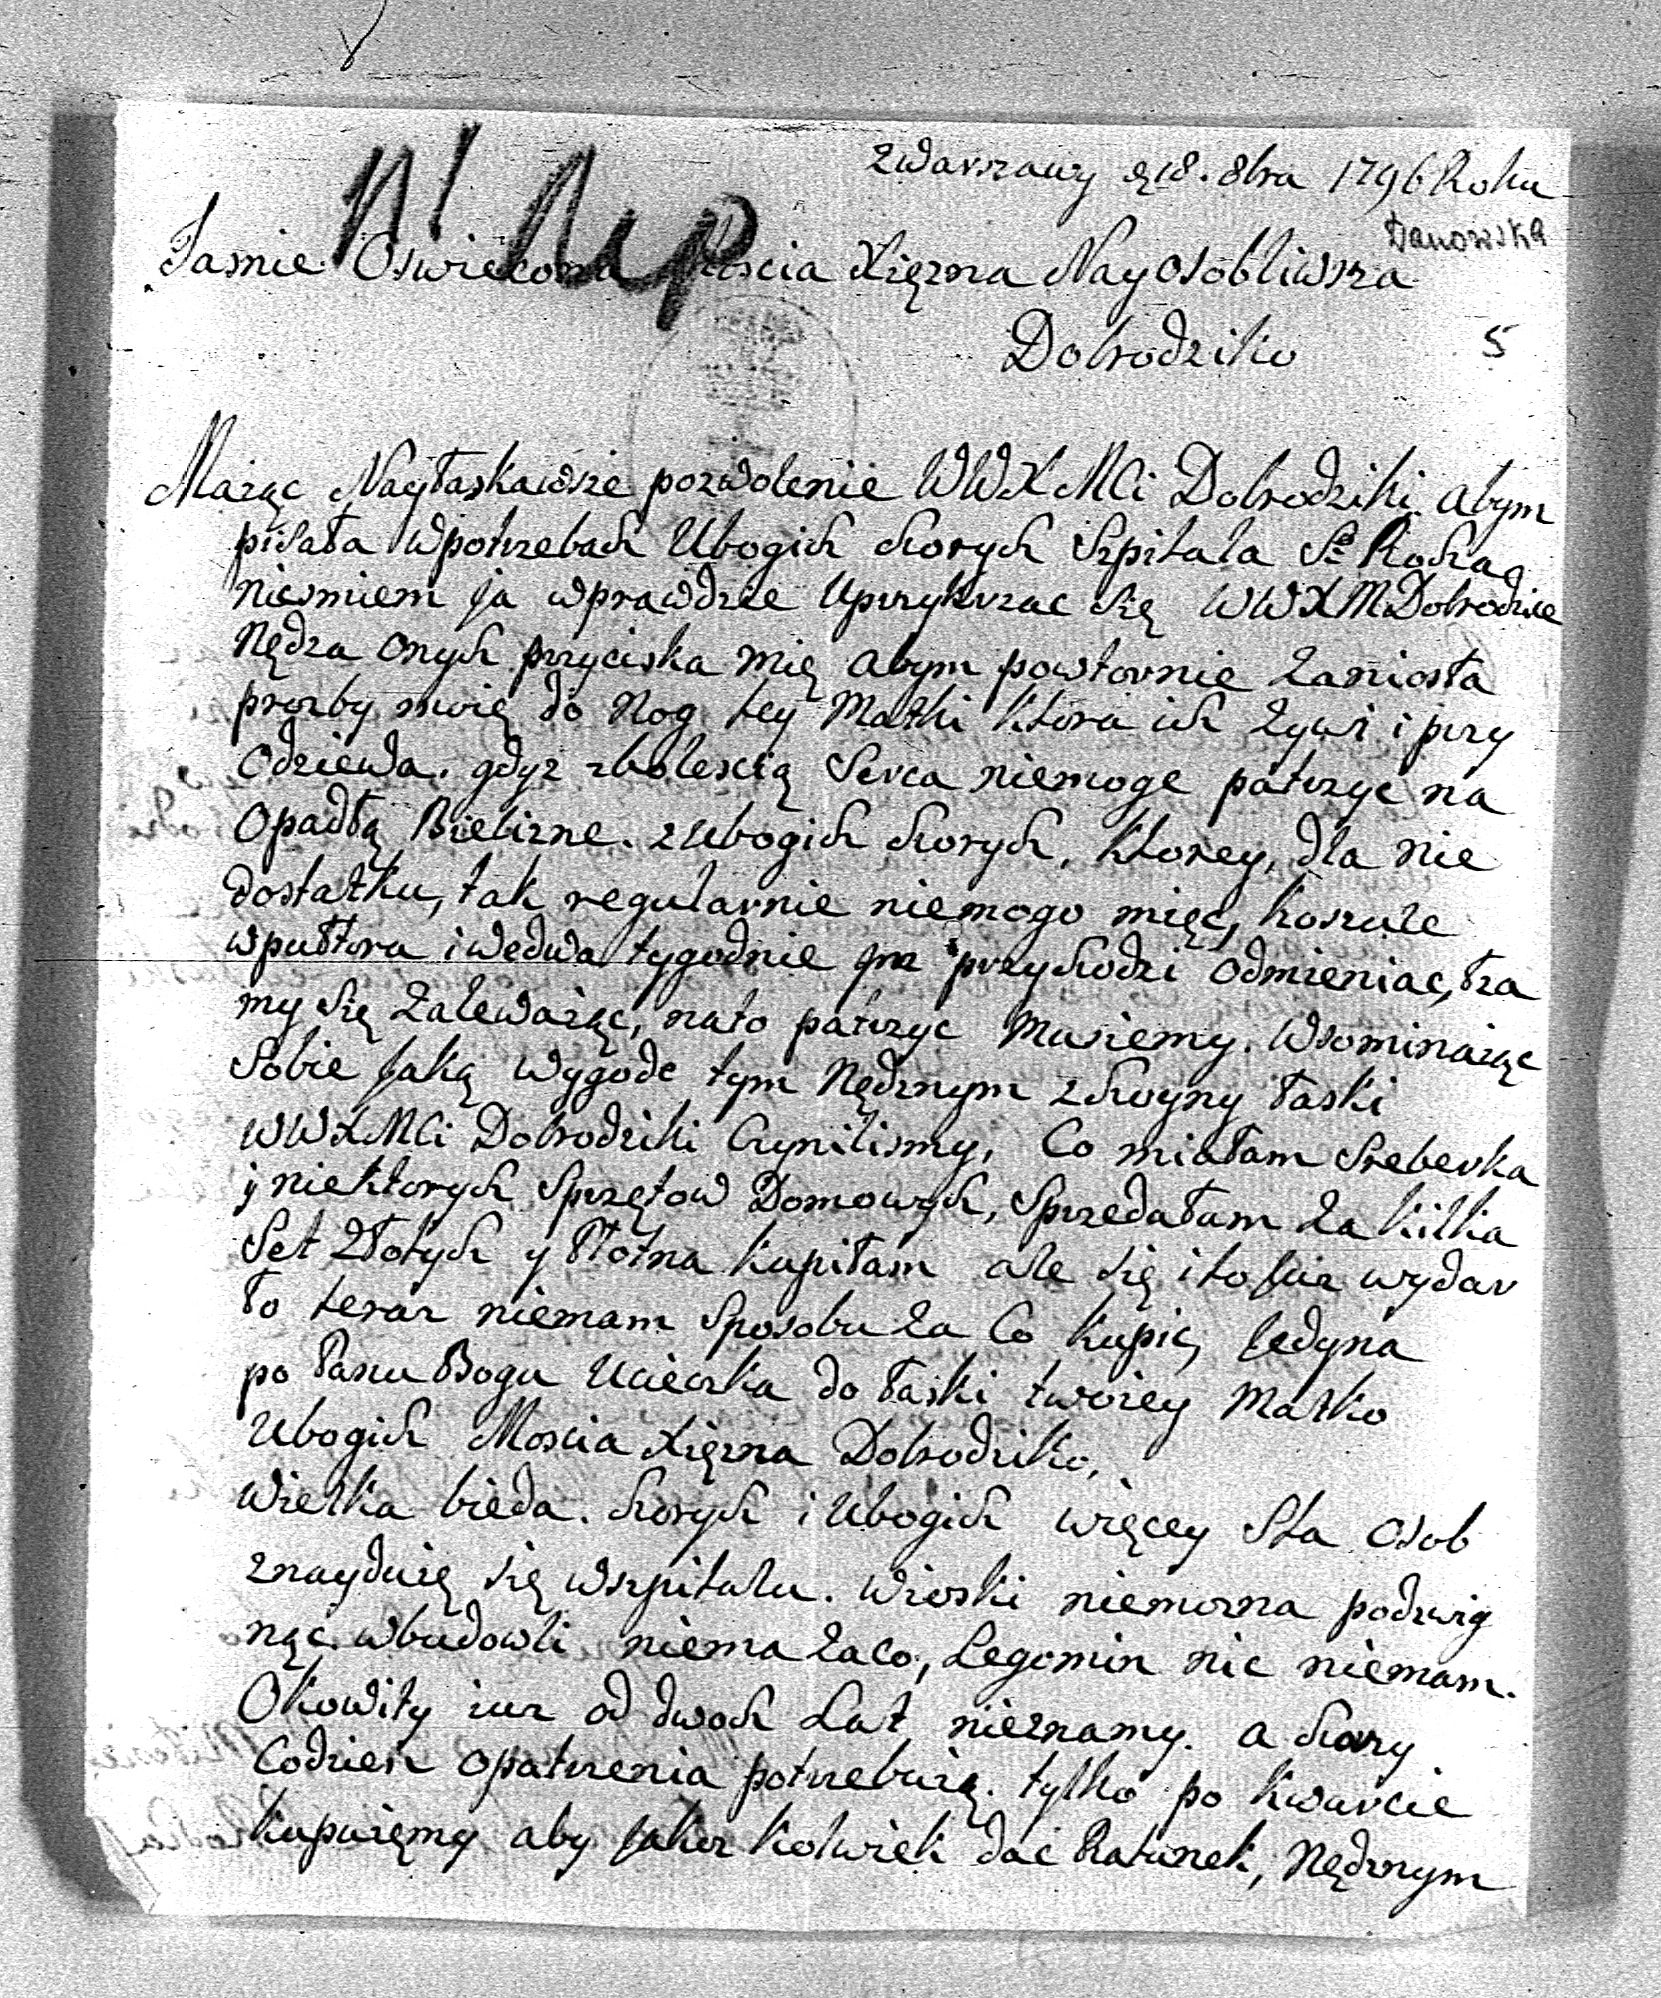 zWarszawy d 18. 8bra 1796 Roku
Danowska
Jasnie Oswiecona Moscia Xięzna Nayosobliwsza
Dobrodziko
5
Maiąc Nayłaskawsze pozwolenie WWXMCi Dobrodziki abym
pisała wpotrzebach Ubogich chorych Szpitala S° Rocha
niesmiem ja wprawdzie uprzykrzac się WWXMDobrodzice
Nędza onych przyciska mię abym powtornie zaniosła
prozby moię do Nog tey Matki ktora ich Zywi i przy
odziewa. gdyz zboloscią Serca niemoge patrzyc na
opadłą Bielizne. z Ubogich chorych, ktorey, dla nie
dostatku, tak regularnie niemogo mięc, koszule
wpułtora i wedwa tygodnie przychodzi odmieniac, łza
my się Zalewaiąc, nato patrzyc Musiemy. Wsominaiąc
Sobie Jaką wygode tym Nędznym zhoyny łaski
WWXMCi Dobrodziki Czynilismy, Co miałam Sreberka
y niektorych Sprzętow Domowych, Sprzedałam Za kilka
Set Złotych y Płotna kupiłam ale się i to Juz wydar
ło teraz niemam Sposobu Za Co kupic, Jedyna
po Panu Bogu Ucieczka do łaski twoiey Matko
Ubogich Moscia Xięzna Dobrodziko,
Wielka bieda. chorych i Ubogich więcey Sta osob
znayduię się wszpitalu. Wioski niemozna podzwig
nąc. wbudowli niema Zaco, Legomin nic niemam.
Okowity iuz od dwoch Lat nieznamy. a chory
Codzien opatrzenia potrzebuią. tylko po kwarcie
kupuięmy aby Jakoz kolwiek dac Ratunek, Nędznym